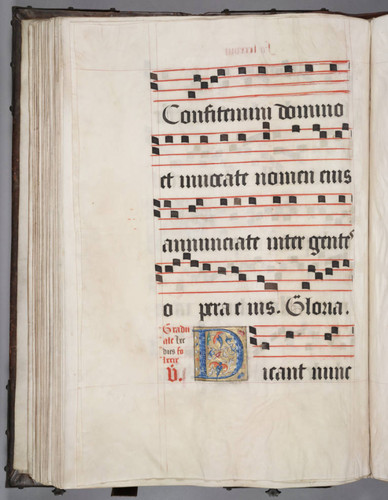 Confitemini domino
et inuocate nomen eius
annunciate inter gentes
o pera e ius. Gloria.
Gradu
ale hec
dies fo
lxxix
V. D icant nunc